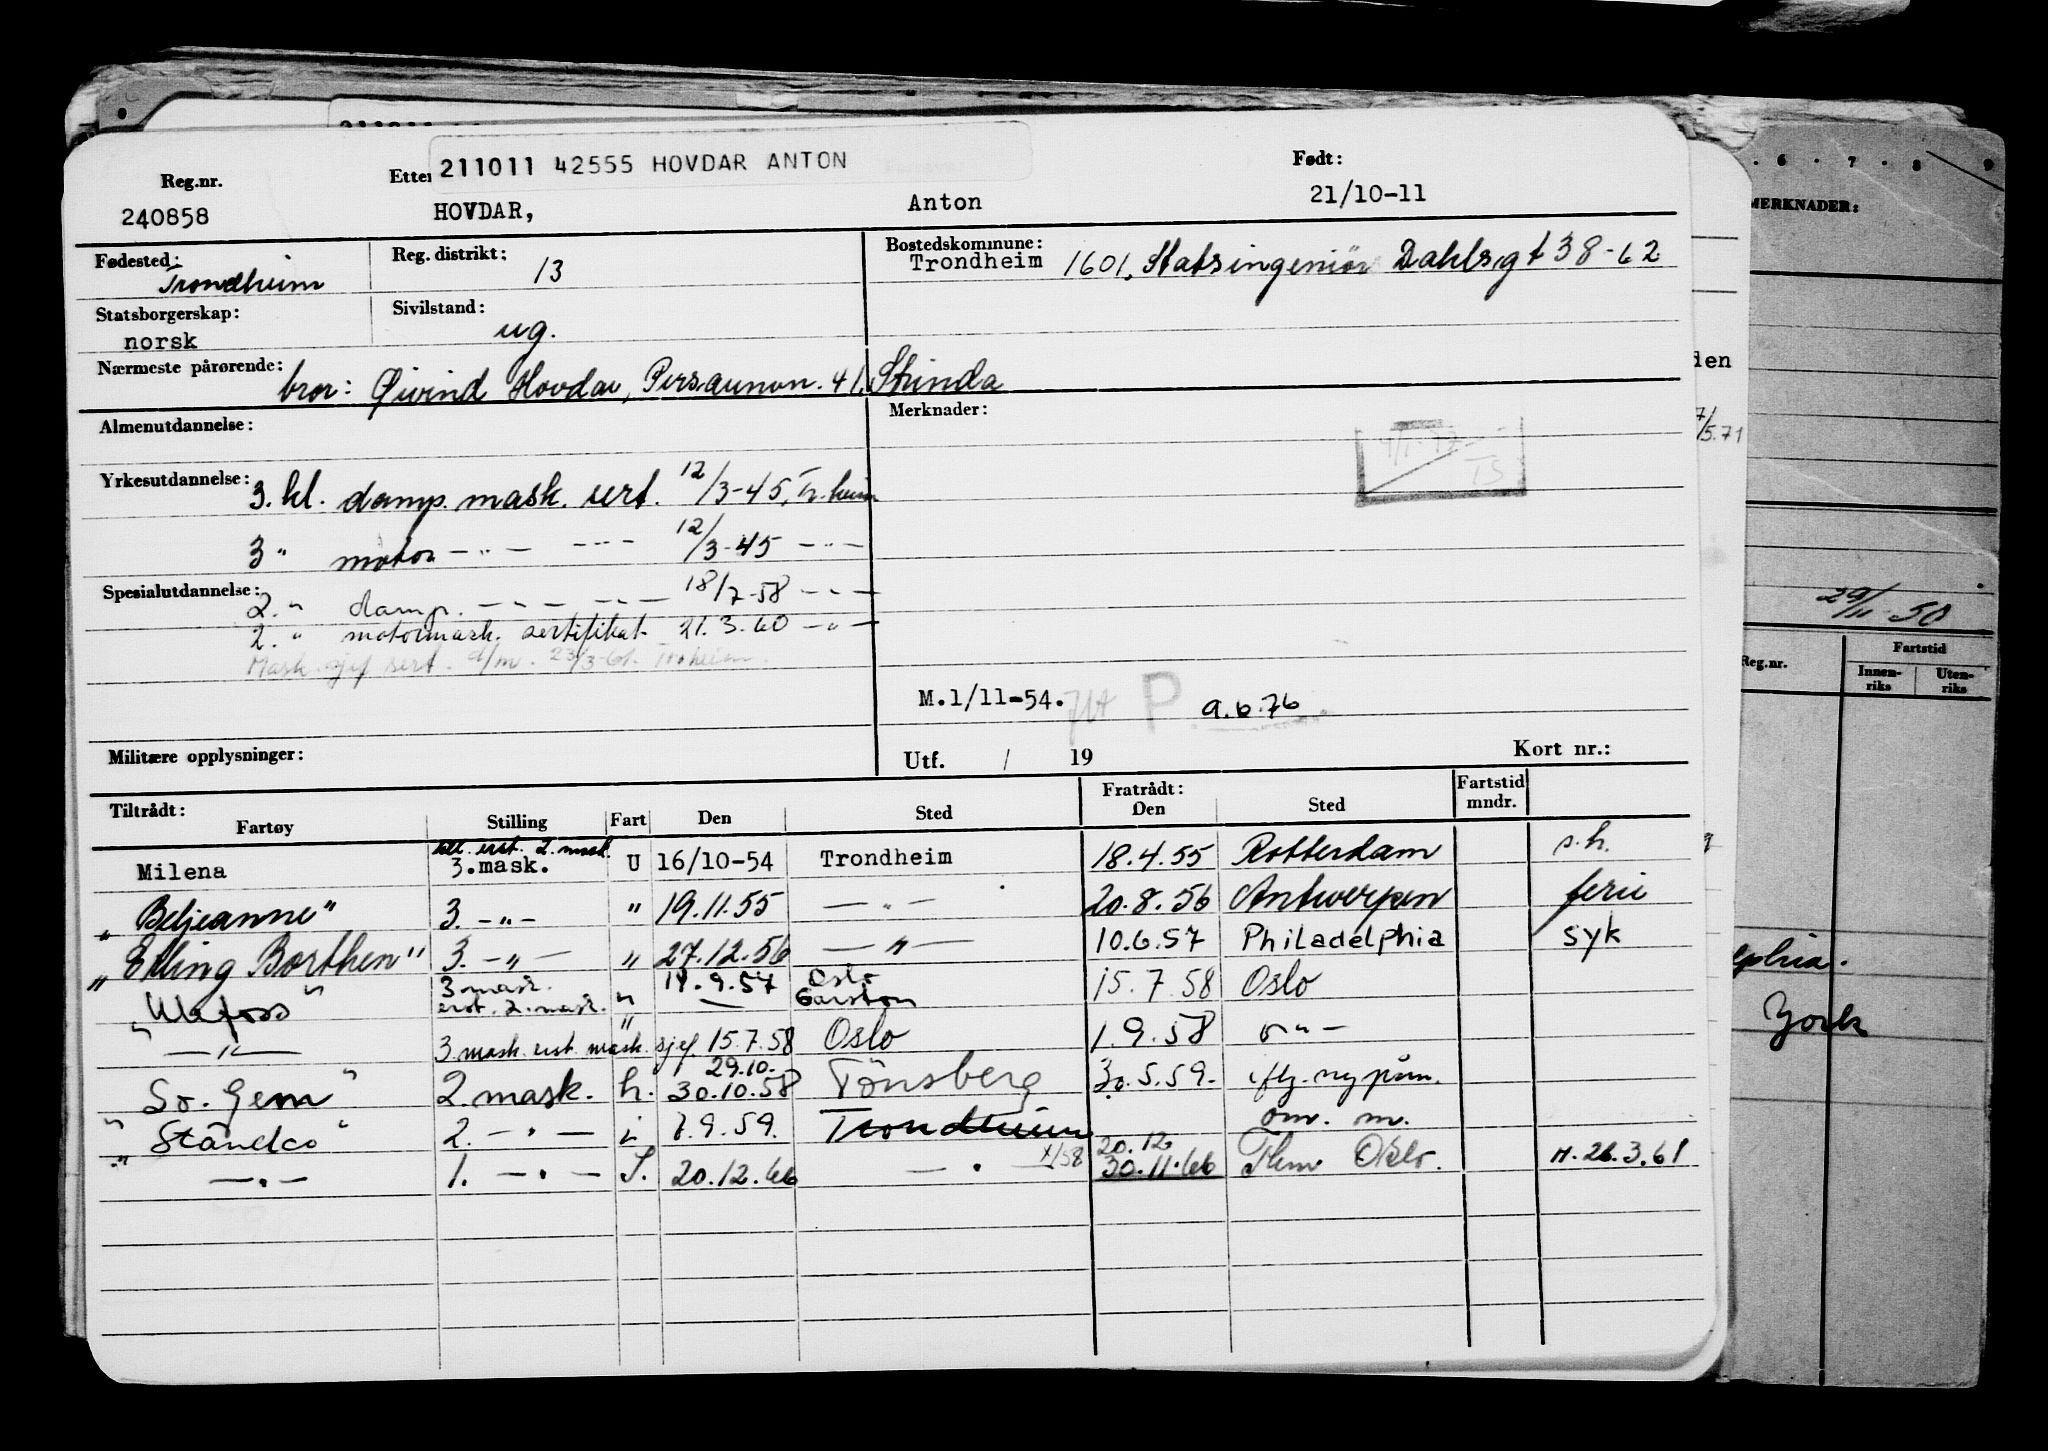 211011 42555 HOVDAR ANTON
Reg.nr. Etter Født:
240858 HOVDAR, Anton 21/10-11
Fødested: Trondheim Reg. distrikt: 13 Bostedskommune: Trondheim 1601, Statsingeniør Dahlsgt 38-62
Statsborgerskap: norsk Sivilstand: ug.
Nærmeste pårørende: bror: Øivind Hovdar, Persaunvn. 41, Strinda
Almenutdannelse: Merknader:
Yrkesutdannelse: 3. kl. damp. mask. sert. 12/3-45, Tr.heim
3 " motor - " - - " - 12/3-45 - " -
Spesialutdannelse: 2. " damp. - " - - " - 18/7-58 - " -
2. " motormask. sertifikat 21.3.60 - " -
Mask.sjef sert. d/m. 23/3-61. Tr.heim.
M.1/11-54. P. 9.6.76
Militære opplysninger: Utf. / 19 Kort nr.:
Tiltrådt: Fratrådt: Fartstid
Fartøy Stilling Fart Den Sted Den Sted mndr.
erst. 2. mask.
Milena 3.mask. U 16/10-54 Trondheim 18.4.55 Rotterdam s.h.
"Beljeanne" 3. - " - " 19.11.55 - " - 20.8.56 Antwerpen ferie
"Erling Borthen" 3. - " - " 27.12.56 - " - 10.6.57 Philadelphia syk
"Ulefoss" 3 mask. " 19.9.57 Oslo 15.7.58 Oslo
erst. 2. mask. " — Garston
- " - 3 mask. erst. mask. sjef. 15.7.58 Oslo 1.9.58 - " -
29.10.
"Sr. Gem" 2. mask. h. 30.10.58 Tönsberg 30.5.59. iflg. ny påm.
"Ståndco" 2. - " - i 7.9.59. Trondheim omr. m.
20.12
- " - 1. - " - S. 20.12.66 - " - 30.11.66 Oslo. M. 26.3.61
6 7 8 9
MERKNADER:
den
7/5.71
29/11-50
Fartstid
Reg.nr. Innen-riks Uten-riks
elphia.
York